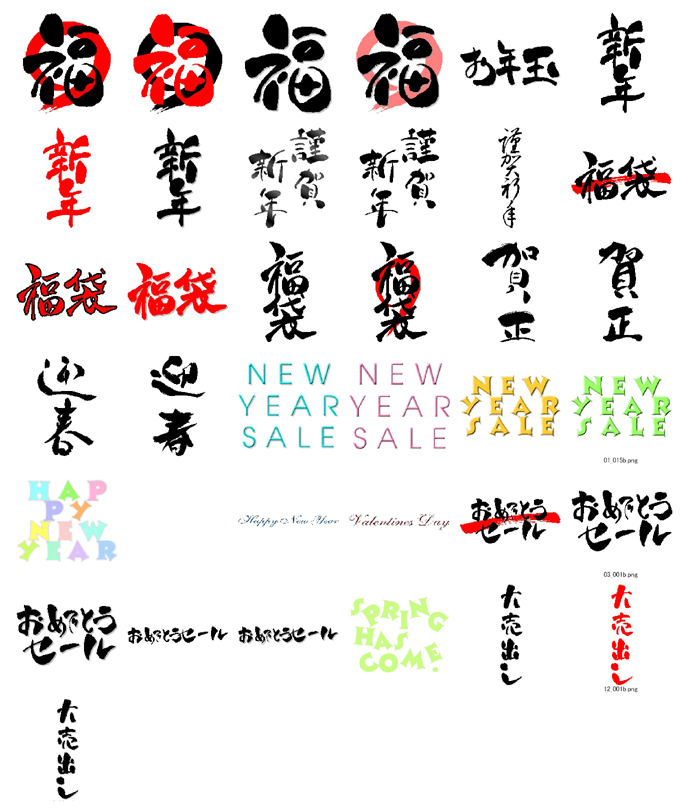 福
福
福
福
お年玉
新年
新年
新年
謹賀
新年
謹賀
新年
謹賀新年
福袋
福袋
福袋
福袋
福袋
賀正
賀正
迎春
迎春
NEW
YEAR
SALE
NEW
YEAR
SALE
NEW
YEAR
SALE
NEW
YEAR
SALE
01_015b.png
HAP
PY
NEW
YEAR
Happy New Year
Valentines Day
おめでとう
セール
おめでとう
セール
03_001b.png
おめでとう
セール
おめでとうセール
おめでとうセール
SPRING
HAS
COME!
大売出し
大売出し
12_001b.png
大売出し